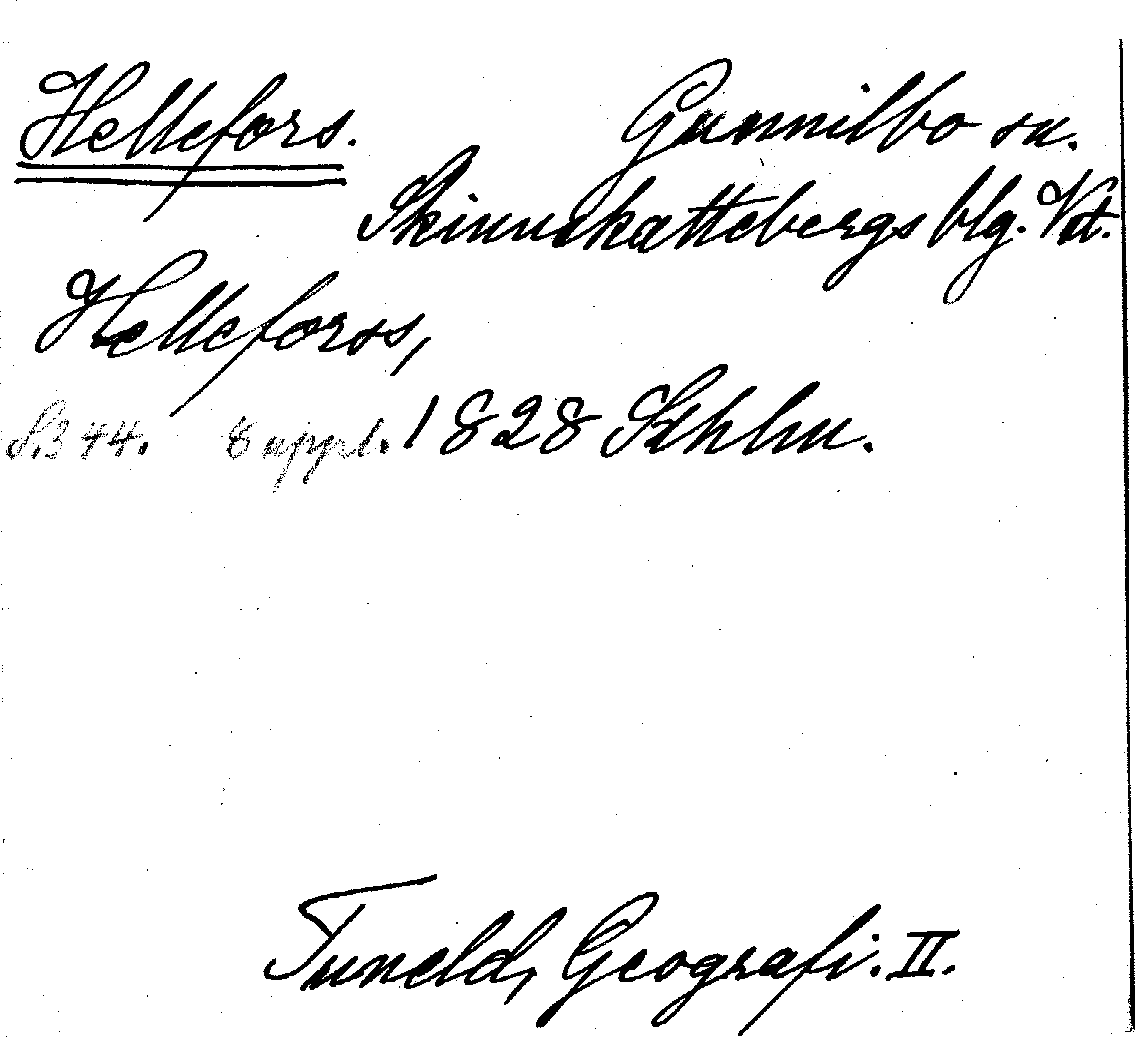 Hellefors. Gunnilbo sn.
Skinnskattebergs blg. Vstm.
Hellefors,
S. 344. 8 uppl. 1828 Sthlm.
Tuneld, Geografi. II.